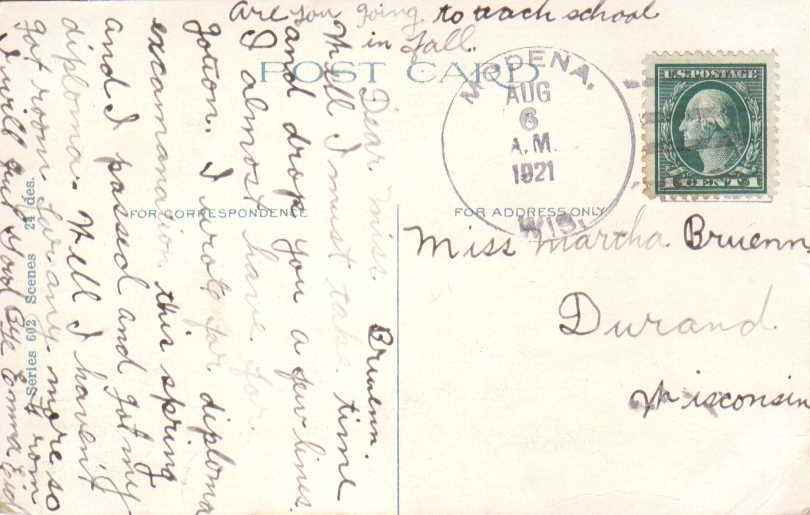 Are you going to teach school
in fall.
POST CARD
MODENA.
AUG
6
A.M.
1921
WIS.
U.S. POSTAGE
1 CENT 1
FOR CORRESPONDENCE
FOR ADDRESS ONLY
Dear Miss. Bruenn.
Well I must take time
and drop you a few lines.
I almost have for.
gotton. I wrote for diploma
excamanation this spring
and I passed and got my
diploma. Well I haven't
got room for any more so
from
I will quit Good Bye Emma
Series 602 Scenes 24 des.
Miss Martha Bruenn
Durand
Wisconsin